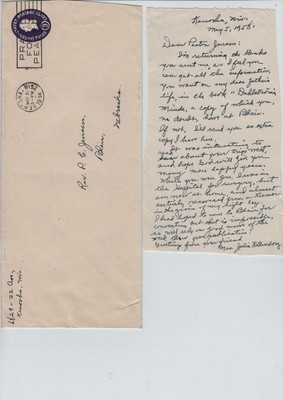 PRAY
FOR
PEACE
WIS.
Rev. P. C. Jensen
Blair,
Nebraska
6129 - 22 Ave,
Kenosha, Wis.
Kenosha, Wis.
May 5, 1956.
Dear Pastor Jensen:
I'm returning the
you sent me, as I feel you
can get all the information
you want on my dear father's
life, in the book "
Minde, a copy of which you,
no doubt, have at Blair.
If not, I'll send you an extra
copy I have here.
It was interesting to
hear about your trip
and hope God will give you
many more happy years.
While you were there, I was in
the Hospital for surgery, but
am now at home, and almost
entirely recovered from a
in the region of my right
I had hoped to come to Blair for
but that is impossible,
so will rely on good news of the
week thru your publication.
Greeting from your friend
Mrs. Julia